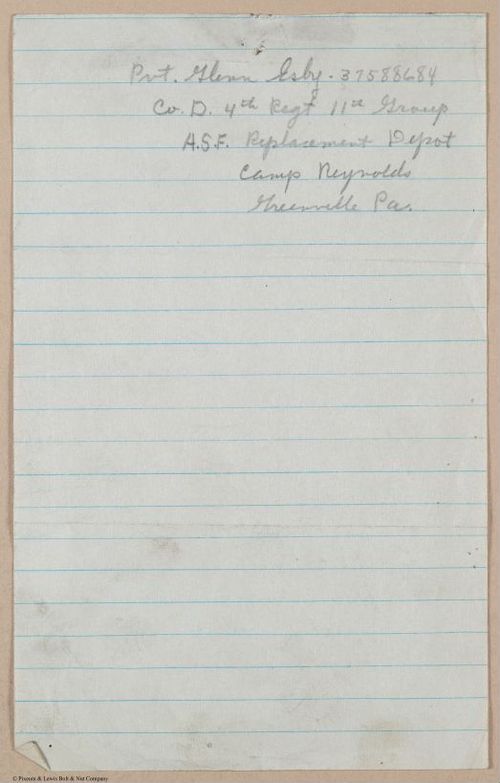 Pvt. Glenn Esby. 37588684
Co. D. 4th Regt 11th Group
A.S.F. Replacement Depot
Camp Reynolds
Greenville Pa.
© Pioneer & Lewis Bolt & Nut Company